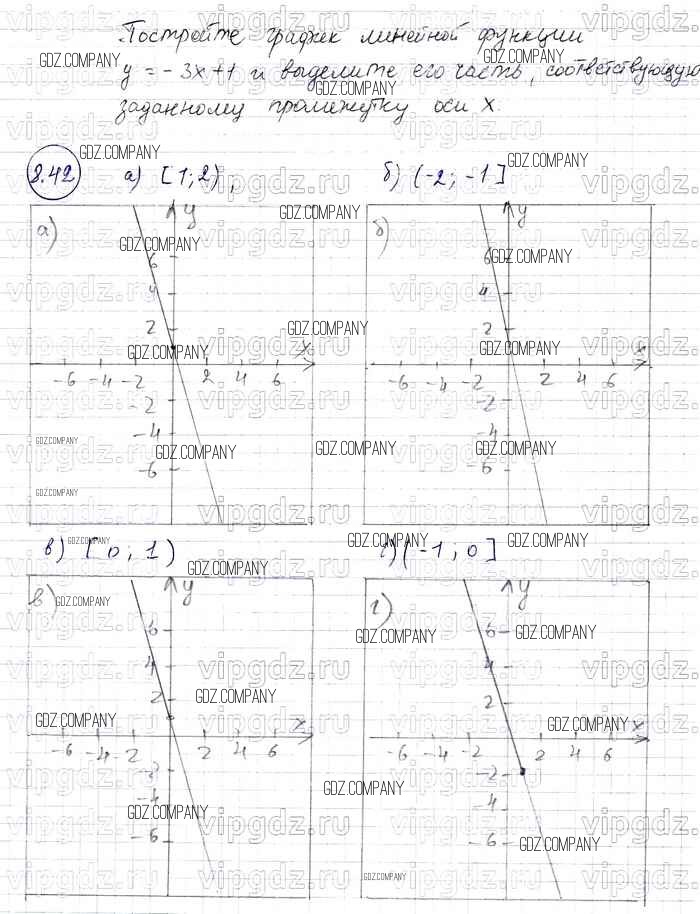 Постройте график линейной функции
y = -3x+1 и выделите его часть, соответствующую
заданному промежутку оси x.
8.42 а) [1;2), б) (-2; -1]
а) y 6 4 2 x -6 -4 -2 2 4 6 -2 -4 -6
б) y 6 4 2 x -6 -4 -2 2 4 6 -2 -4 -6
в) [0; 1) г) (-1; 0]
в) y 6 4 2 x -6 -4 -2 2 4 6 -2 -4 -6
г) y 6 4 2 x -6 -4 -2 2 4 6 -2 -4 -6
GDZ.COMPANY
vipgdz.ru